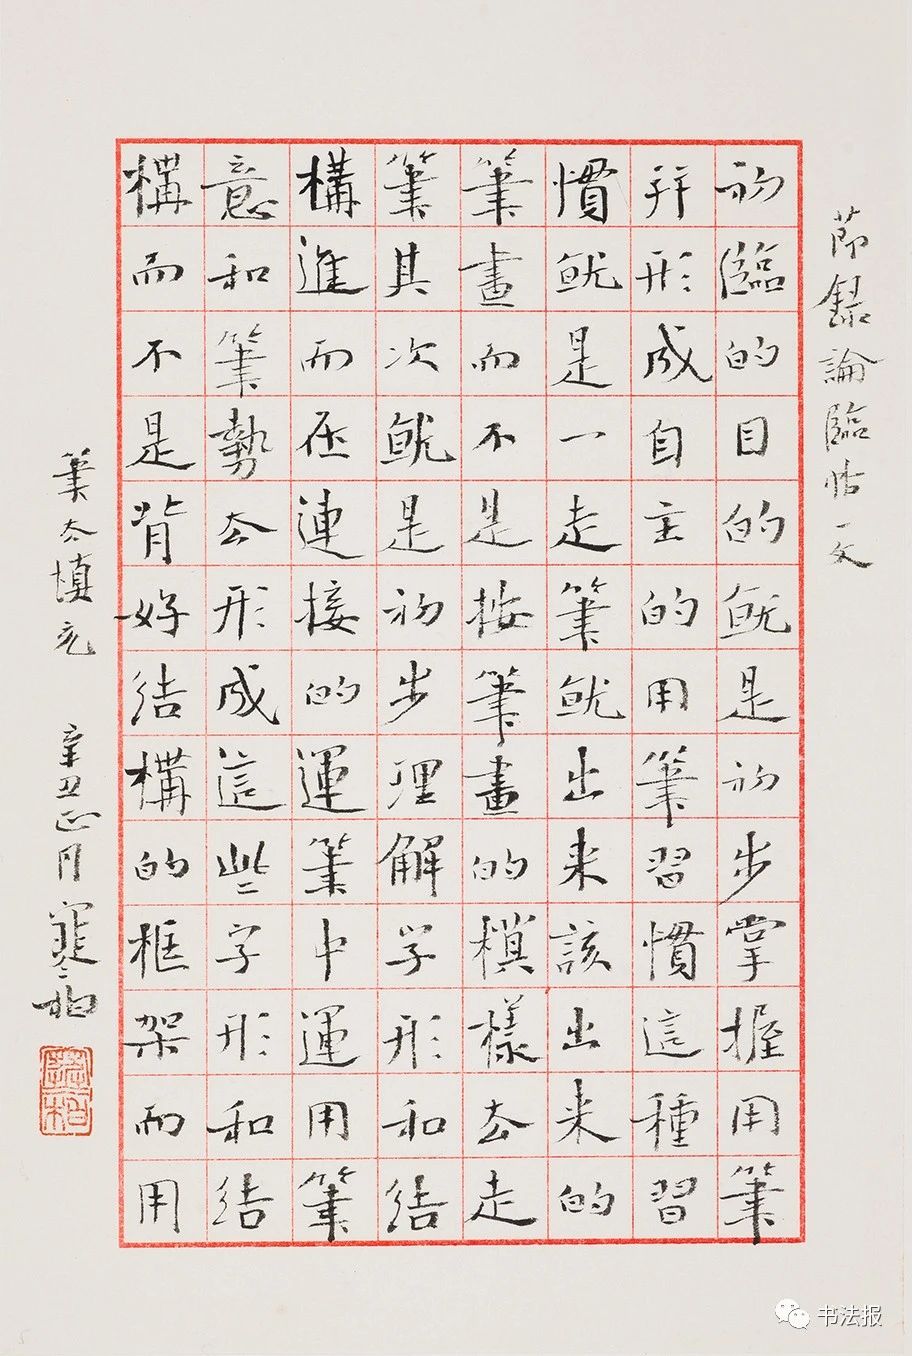 節録論臨帖一文
初臨的目的就是初步掌握用筆
并形成自主的用筆習慣這種習
慣就是一走筆就出来該出来的
筆畫而不是按筆畫的模樣去走
筆其次就是初步理解字形和结
構進而在連接的運筆中運用筆
意和筆勢去形成這些字形和结
構而不是背好结構的框架而用
筆去填充
辛丑正月寒柏
书法报